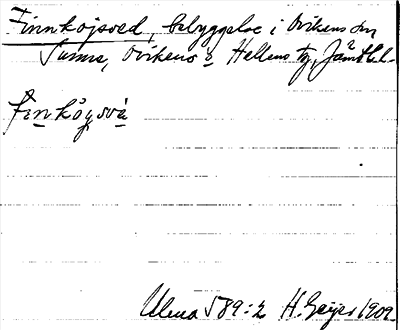 Finnköjsved, bebyggelse i Ovikens sn
Sunne, Ovikens o Hellens tg, Jämtl.
finkögsvé
Ulma 589:2 H. Geijer 1909.